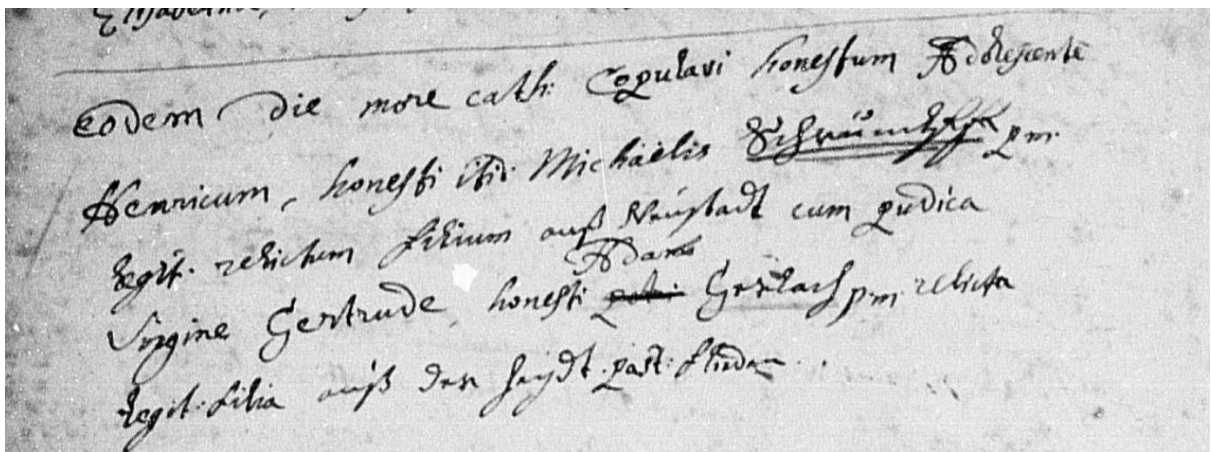 Eodem die more cath: Copulavi honestum Adolescente
Henricum, honesti Michaëlis p.m.
legit. relictum filium auß Neüstadt cum pudica
Adami
Virgine Gertrude, honesti Gerlach p.m. relicta
legit. filia auß der Heÿdt. past: flieden.